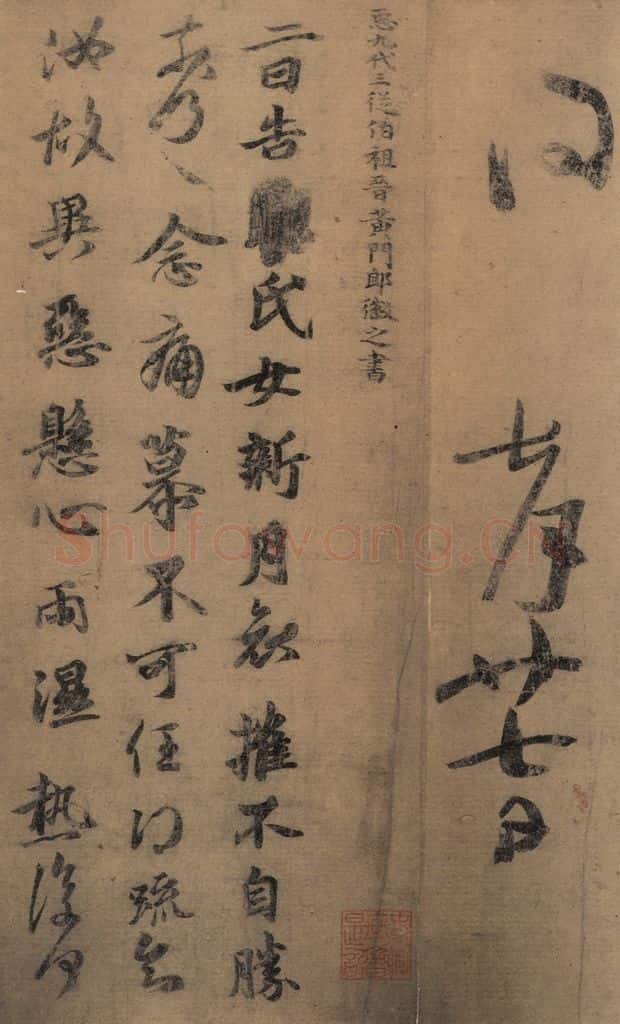 七月廿七日
𢘑九代三從伯祖晉黃門郎徽之書
二日告氏女新月哀摧不自勝
奈何〻念痛慕不可任得疏知
汝故異惡懸心雨濕熱復何
Shufawang.CN